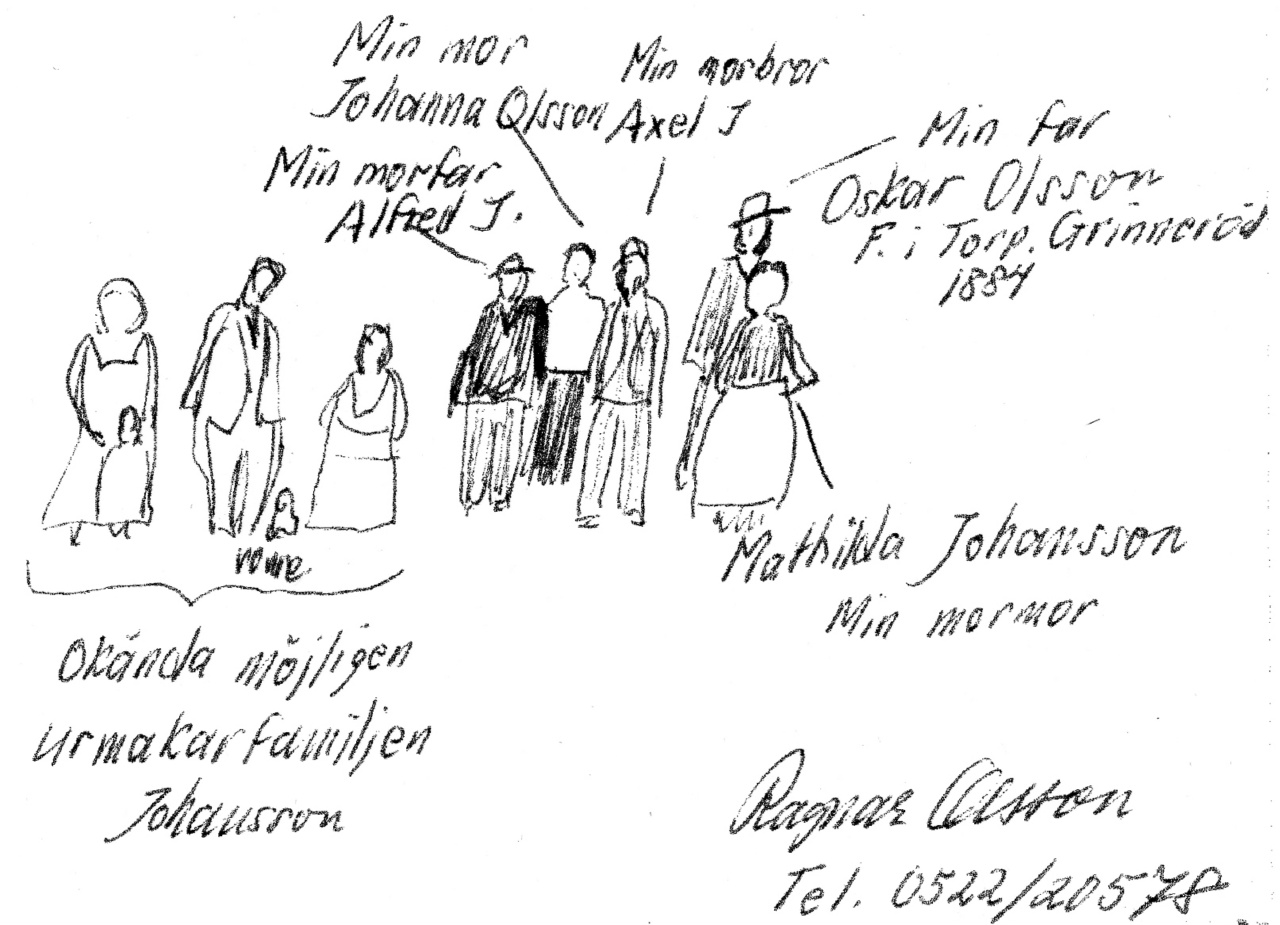 Min mor
Johanna Olsson
Min morbror
Axel J
Min morfar
Alfred J.
Min far
Oskar Olsson
F. i Torp. Grinneröd
1884
Mathilda Johansson
Min mormor
Okända möjligen
urmakarfamiljen
Johansson
Ragnar Olsson
Tel. 0522/20578